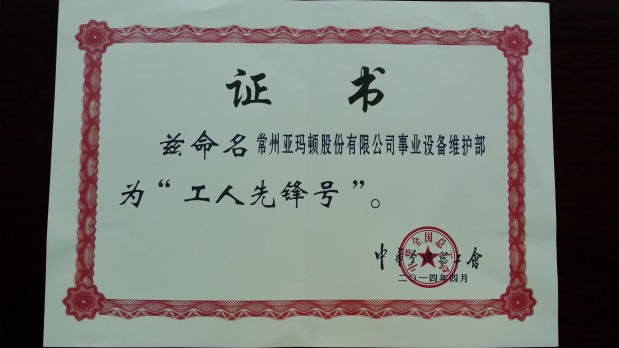 证 书
兹命名常州亚玛顿股份有限公司事业设备维护部
为“工人先锋号”。
中华全国总工會
二〇一四年四月